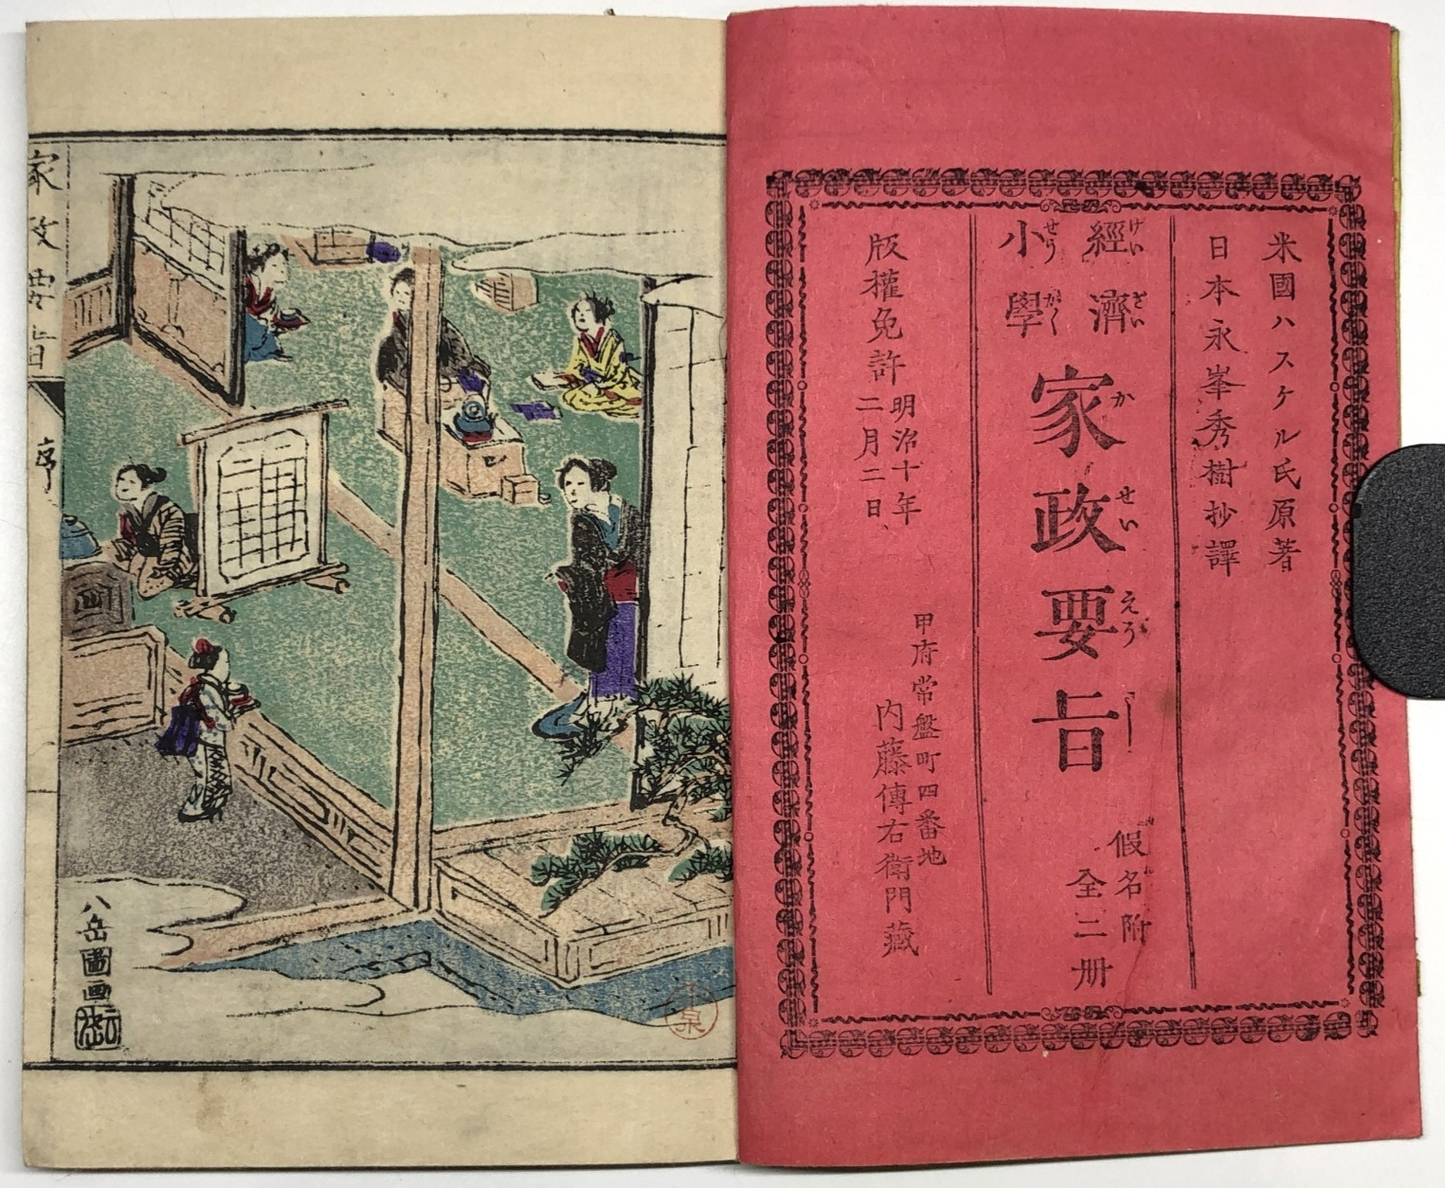 米國ハスケル氏原著
日本永峯秀樹抄譯
經濟
けいざい
小學
せうがく
家政要旨
かせいえうし
假名附
全二册
版權免許
明治十年
二月二日
甲府常盤町四番地
内藤傳右衛門藏
家政要旨
序
八岳圖画
泉